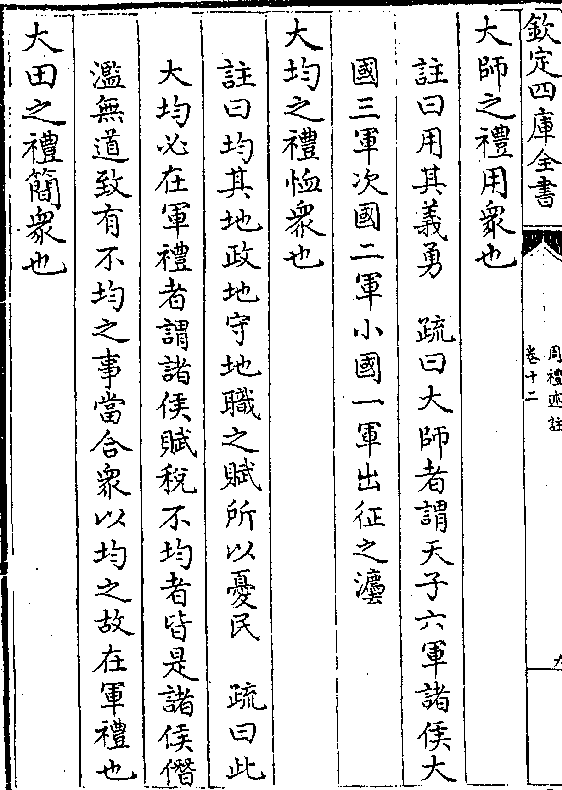 欽定四庫全書
周禮述註
卷十二
大師之禮用衆也
註曰用其義勇 疏曰大師者謂天子六軍諸侯大
國三軍次國二軍小國一軍出征之灋
大均之禮恤衆也
註曰均其地政地守地職之賦所以憂民 疏曰此
大均必在軍禮者謂諸侯賦稅不均者皆是諸侯僭
濫無道致有不均之事當合衆以均之故在軍禮也
大田之禮簡衆也